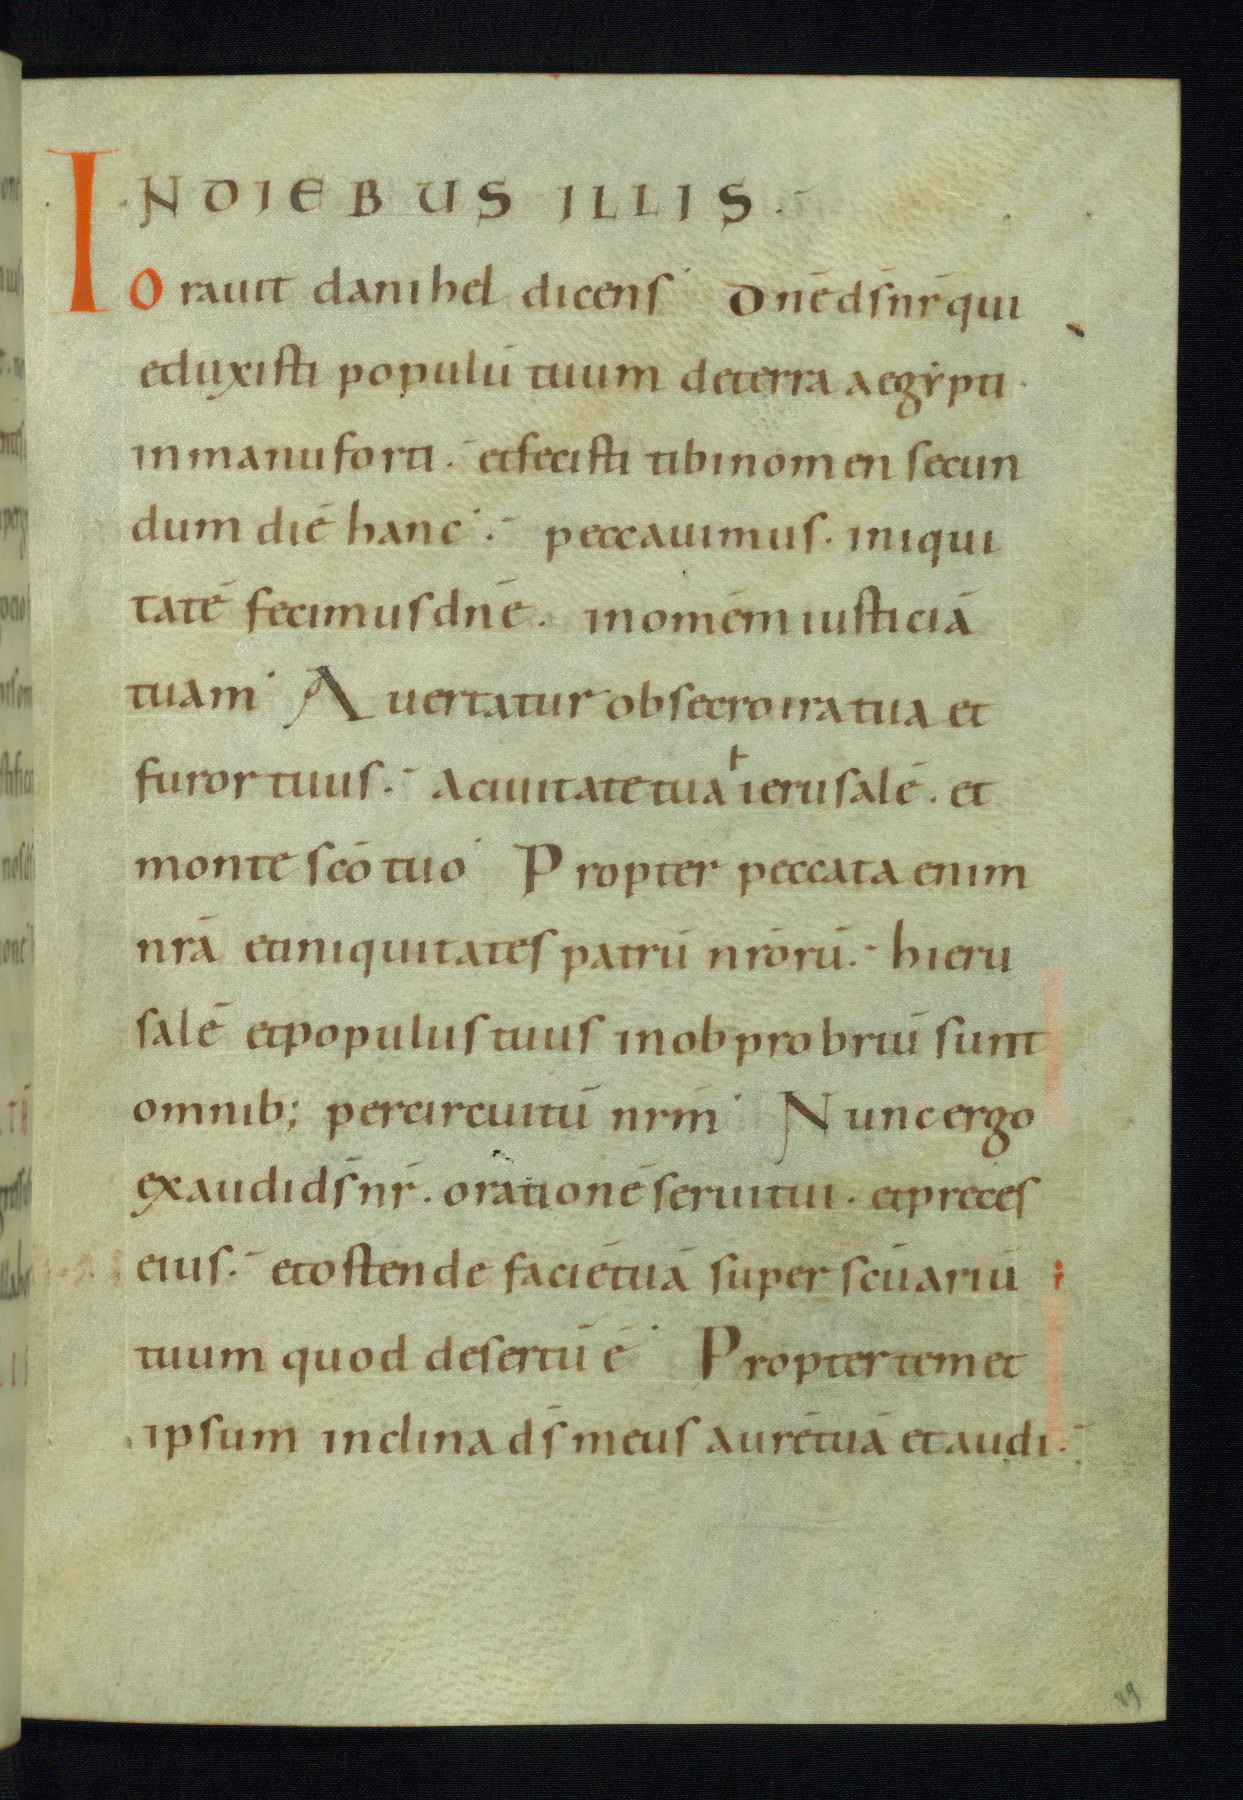 IN DIEBUS ILLIS.
Orauit danihel dicens. Dnē ds̄ nr̄ qui
eduxisti populū tuum de terra aegẏpti
in manu forti. et fecisti tibi nomen secun
dum diē hanc. peccauimus. iniqui
tatē fecimus dnē. in omēm iusticiā
tuam. Auertatur obsecro ira tua et
furor tuus. a ciuitate tua ierusalē. et
monte scō tuo. Propter peccata enim
nrā et iniquitates patrū nrōrū. hieru
salē et populus tuus in obprobriū sunt
omnib; per circuitū nrm̄. Nunc ergo
exaudi ds̄ nr̄. orationē serui tui. et preces
eius. et ostende faciē tuā super scūariū
tuum quod desertū ē. Propter temet
ipsum inclina ds̄ meus aurē tuā et audi.
89